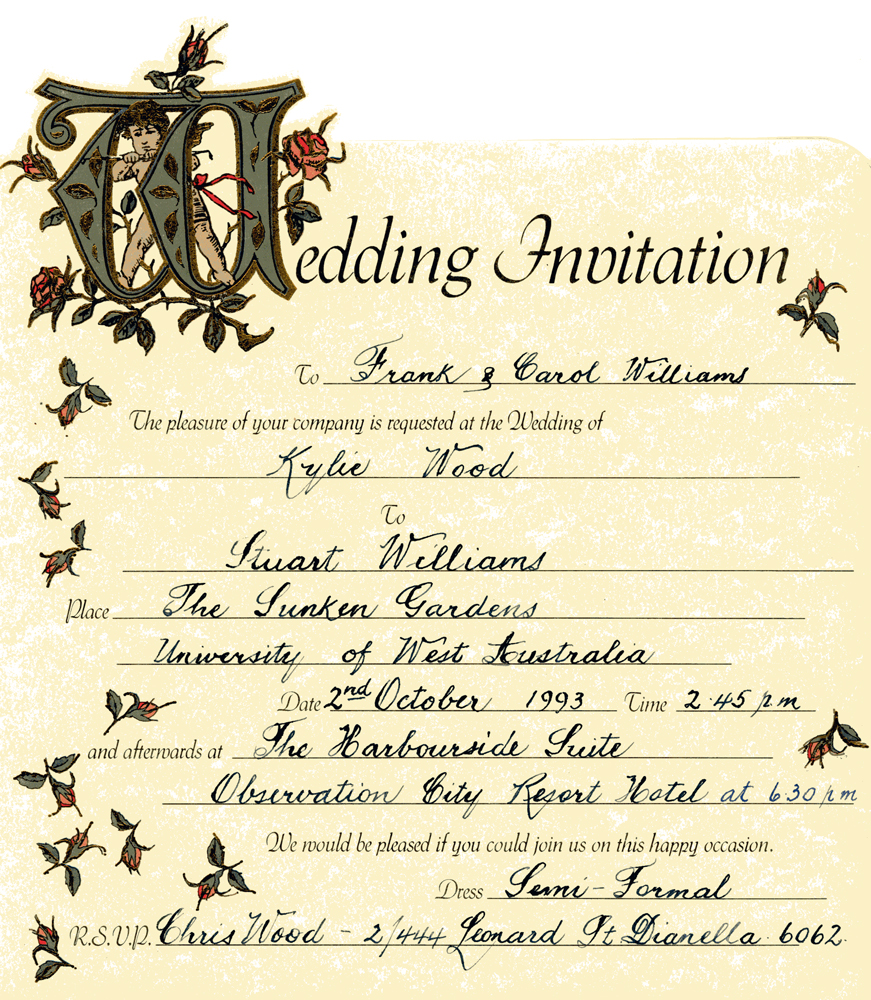 Wedding Invitation
To Frank & Carol Williams
The pleasure of your company is requested at the Wedding of
Kylie Wood
To
Stuart Williams
Place The Sunken Gardens
University of West Australia
Date 2nd October 1993 Time 2.45 pm
and afterwards at The Harbourside Suite
Observation City Resort Hotel at 6.30 pm
We would be pleased if you could join us on this happy occasion.
Dress Semi-Formal
R.S.V.P. Chris Wood - 2/444 Leonard St Dianella. 6062.